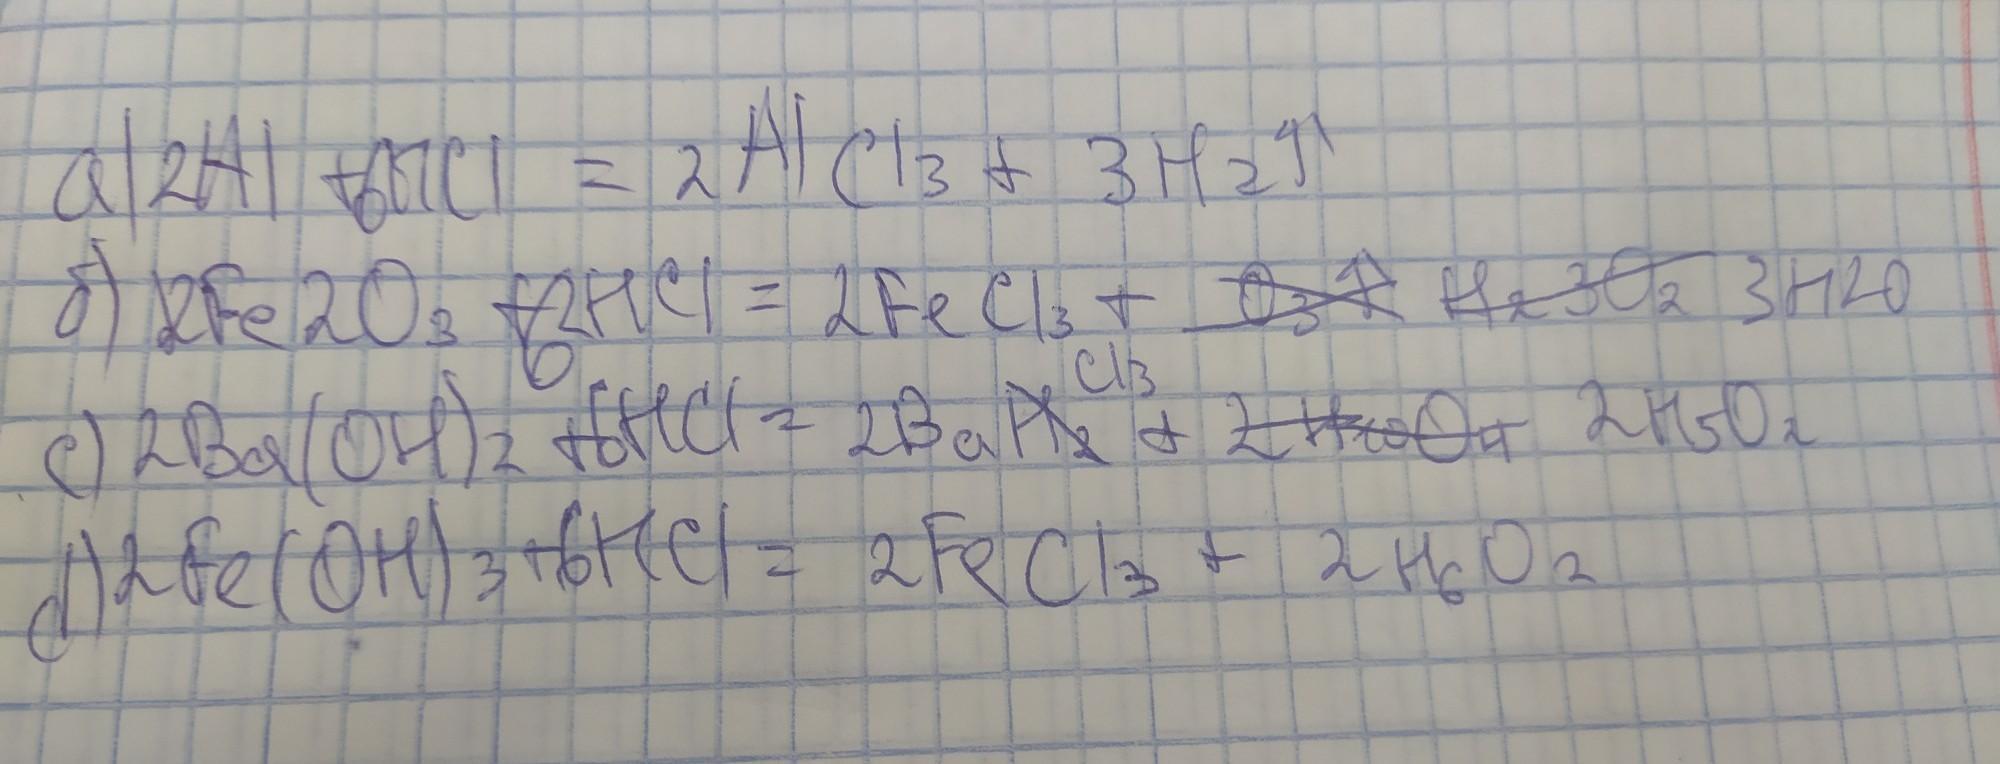 а) 2Al + 6HCl = 2AlCl3 + 3H2↑
б) Fe2O3 + 6HCl = 2FeCl3 + 3H2O
c) 2Ba(OH)2 + 6HCl = 2BaCl3 + 2H5O2
d) 2Fe(OH)3 + 6HCl = 2FeCl3 + 2H6O2